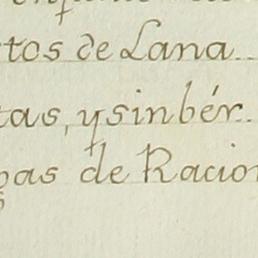 tos de Lana
tas, y sin bér
pas de Racion